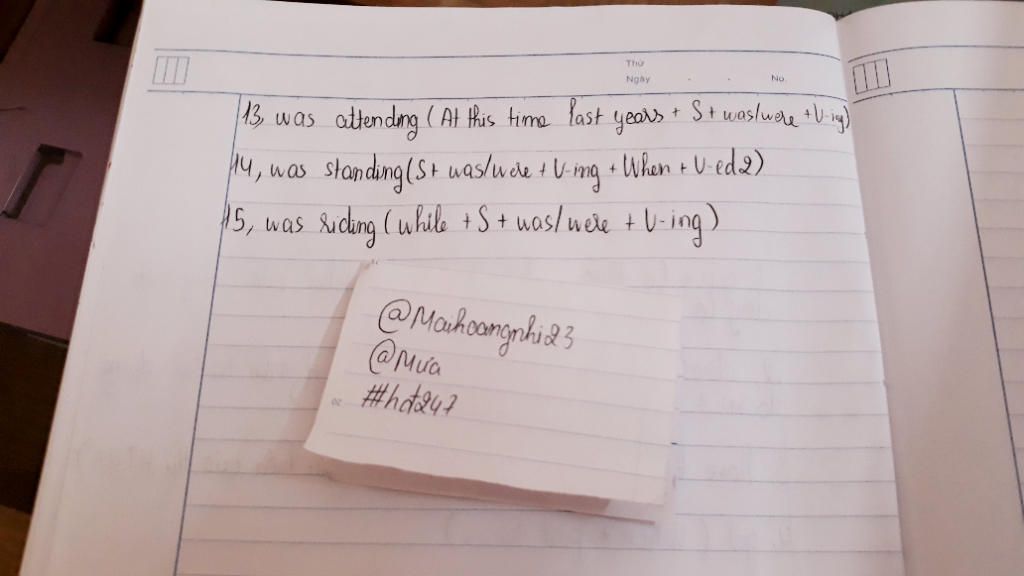 Thứ
Ngày . . No.
13, was attending (At this time last years + S + was/were + V-ing)
14, was standing (S + was/were + V-ing + When + V-ed2)
15, was riding (while + S + was/were + V-ing)
@Maihoangnhi23
@Mưa
#hot247